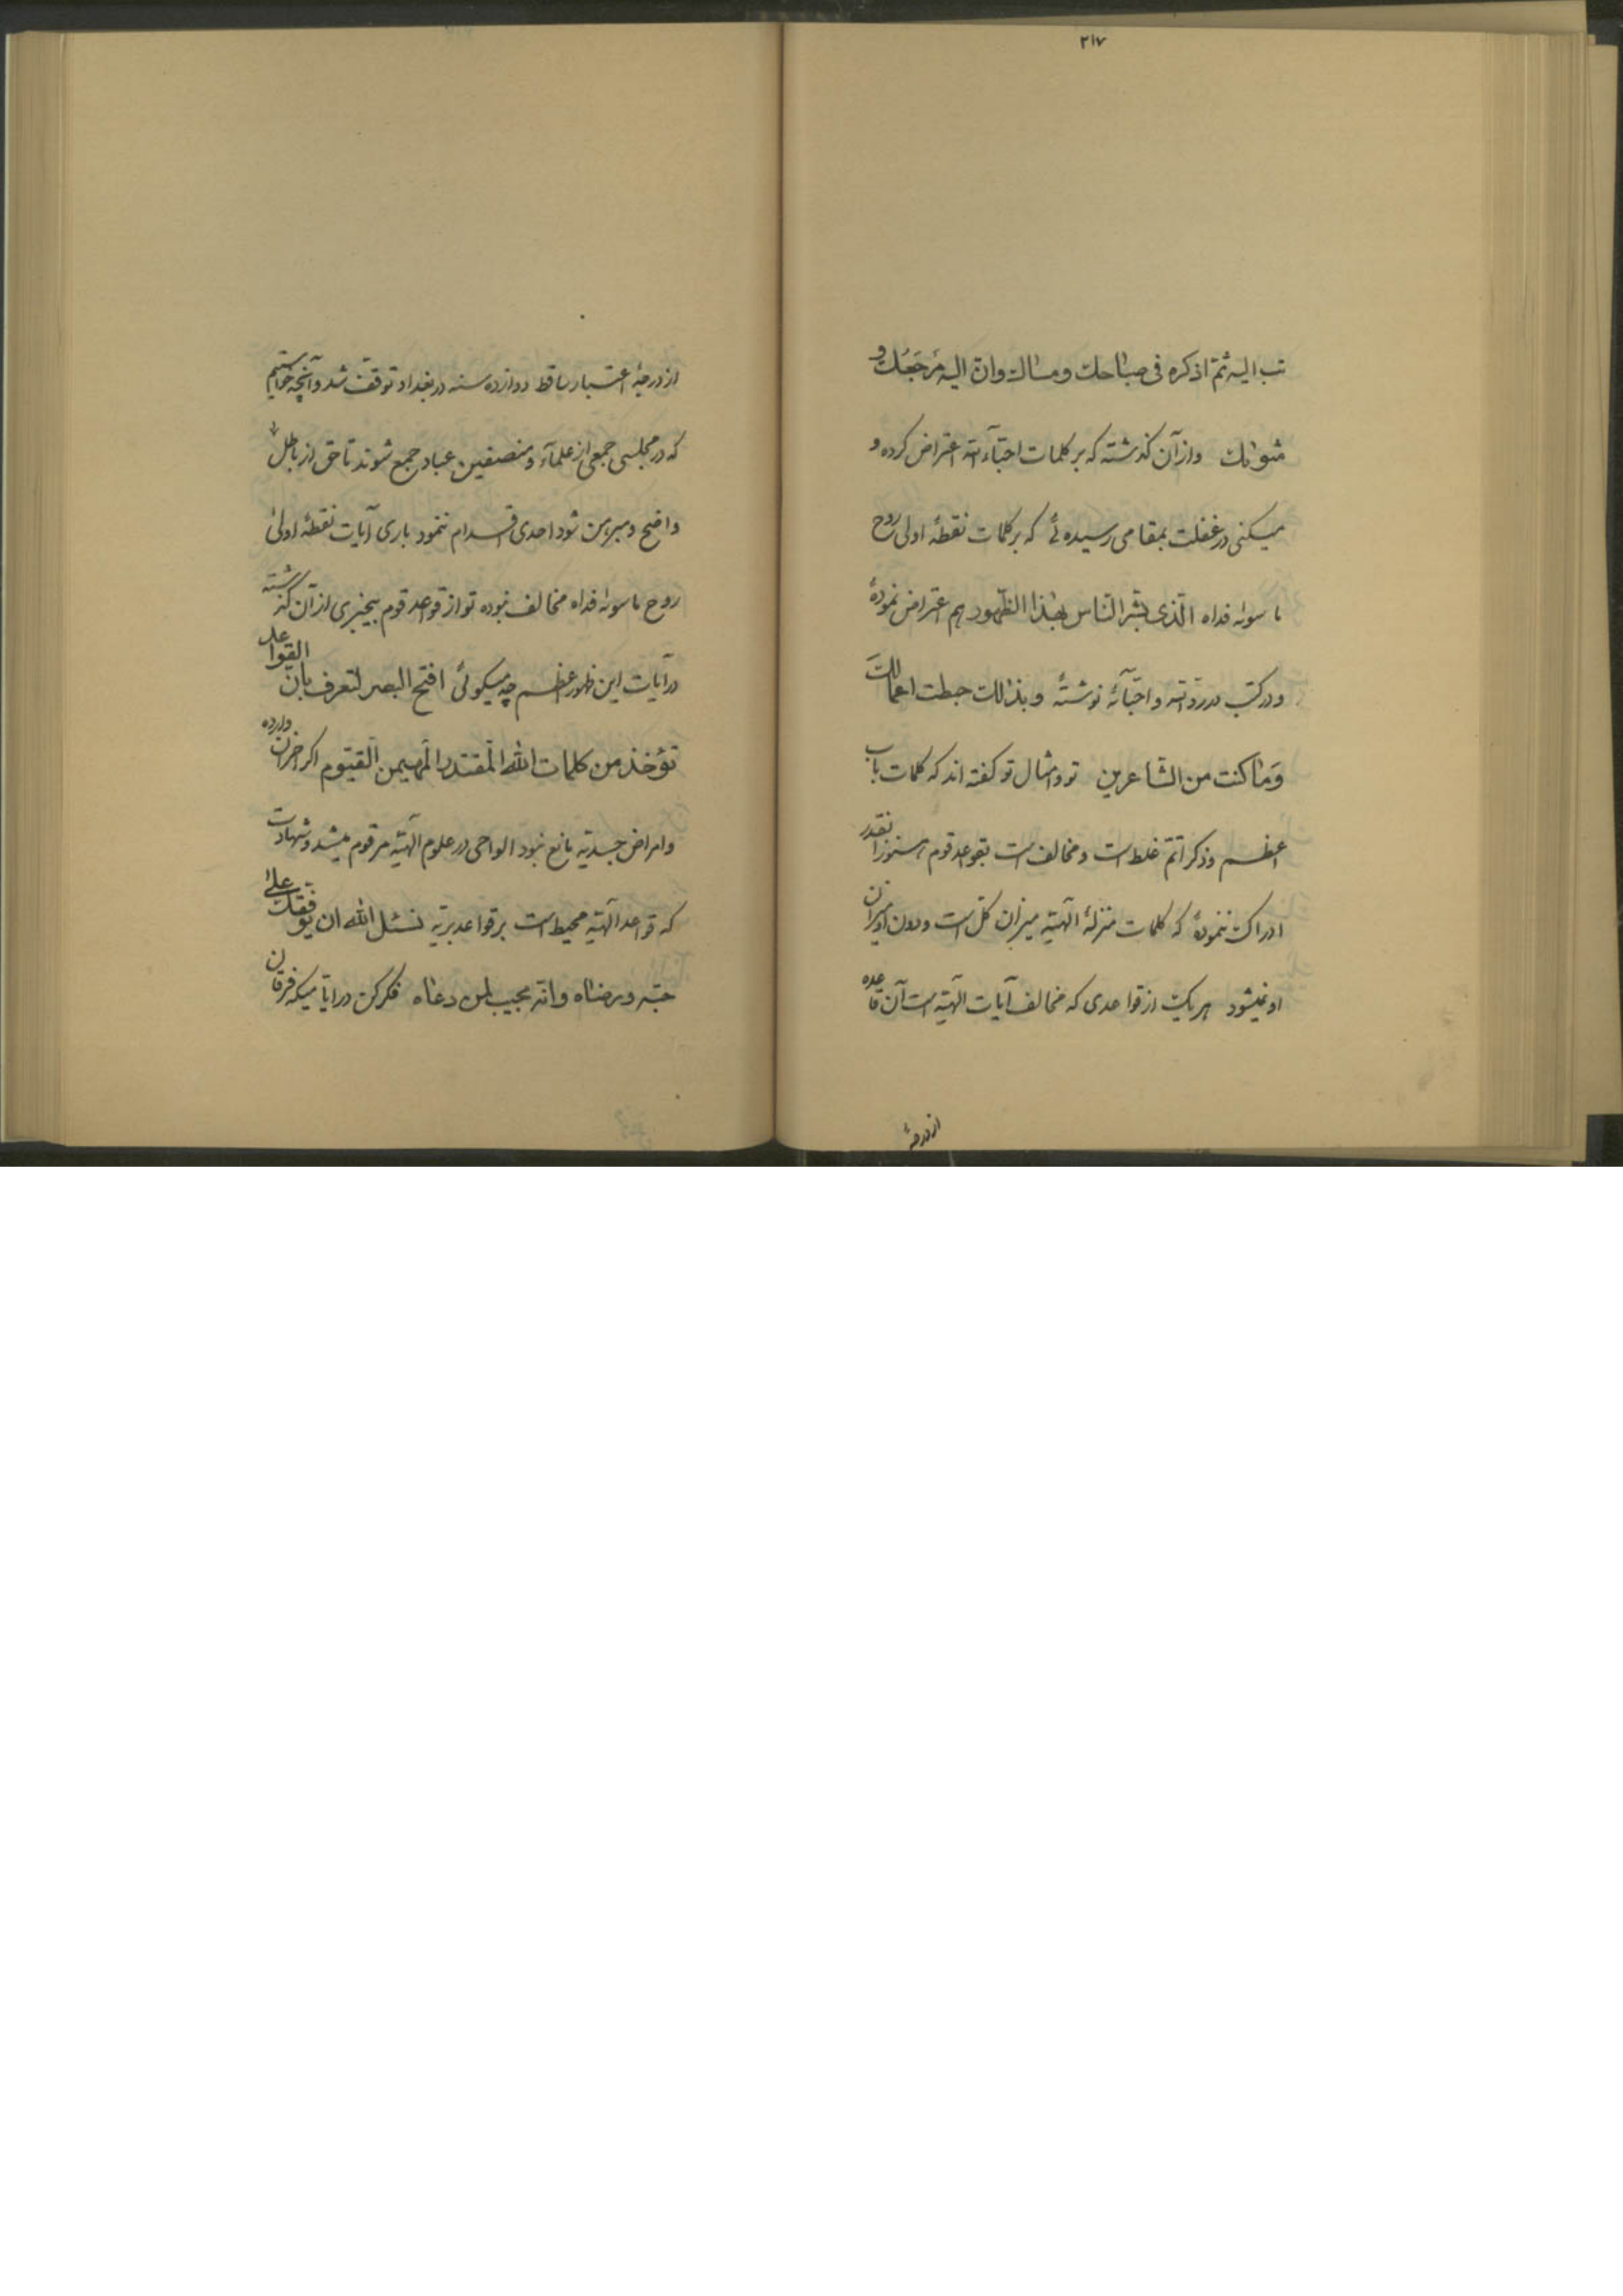 ۲۱۷
تب الیه ثمّ اذکره فی صباحک ومسائک وانّ الیه مرجعک و
مثواک وازآن گذشته که بر کلمات احبّآء الله اعتراض کرده و
میکنی در غفلت بمقامی رسیده ئی که بر کلمات نقطهٔ اولی روح
ما سواه فداه الّذی بشّر النّاس بهذا الظّهور هم اعتراض نمودهٔ
و در کتب در ردّ الله و احبّآئه نوشتهٔ و بذلک حبطت اعمالک
وما کنت من الشّاعرین تو و امثال تو گفته اند که کلمات باب
اعظم و ذکر اتمّ غلط است و مخالف است بقواعد قوم هنوز آنقدر
ادراک ننمودهٔ که کلمات منزلهٔ الهیّه میزان کلّ است و دون او میزان
او نمیشود هر یک از قواعدی که مخالف آیات الهیّه است آن قاعده
از درجهٔ
از درجهٔ اعتبار ساقط دوازده سنه در بغداد توقّف شد و آنچه خواستیم
که در مجلسی جمعی از علمآء و منصفین عباد جمع شوند تا حقّ از باطل
واضح و مبرهن شود احدی اقدام ننمود باری آیات نقطهٔ اولی
روح ما سواه فداه مخالف نبوده تو از قواعد قوم بیخبری از آن گذشته
در آیات این ظهور اعظم چه میگوئی افتح البصر لتعرف بانّ القواعد
تؤخذ من کلمات الله المقتدر المهیمن القیّوم اگر احزان وارده
و امراض جسدیّه مانع نبود الواحی در علوم الهیّه مرقوم میشد و شهادت
که قواعد الهیّه محیط است بر قواعد بریّه نسئل الله ان یوفّقک علی
حبّه و رضاه و انّه مجیب لمن دعاه فکر کن در ایّامیکه فرقان